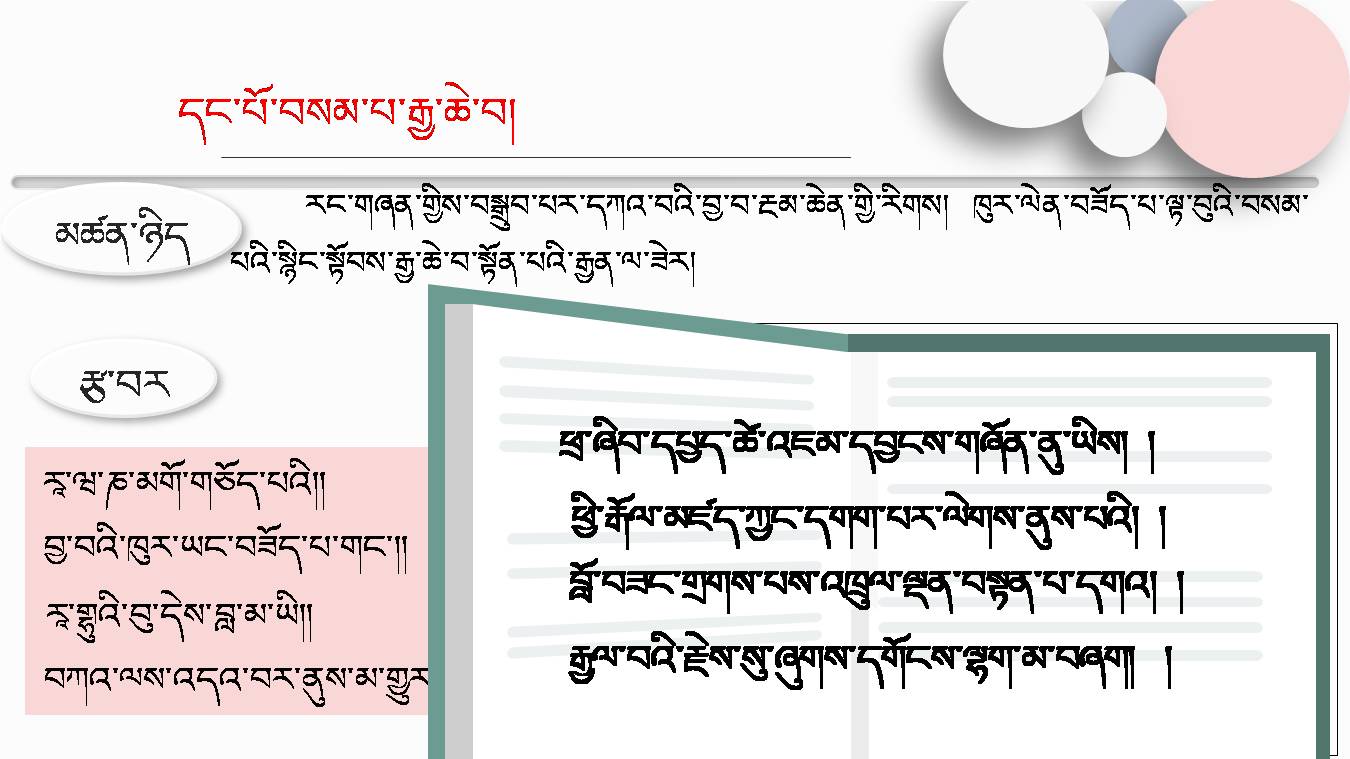 དང་པོ་བསམ་པ་རྒྱ་ཆེ་བ།
མཚན་ཉིད
རང་གཞན་གྱིས་བསྒྲུབ་པར་དཀའ་བའི་བྱ་བ་རྔམ་ཆེན་གྱི་རིགས། ཁུར་ལེན་བཟོད་པ་ལྟ་བུའི་བསམ་
པའི་སྙིང་སྟོབས་རྒྱ་ཆེ་བ་སྟོན་པའི་རྒྱན་ལ་ཟེར།
རྩ་བར
རཱ་ཝ་ཎ་མགོ་གཅོད་པའི༎
བྱ་བའི་ཁུར་ཡང་བཟོད་པ་གང་༎
རཱ་གྷུའི་བུ་དེས་བླ་མ་ཡི༎
བཀའ་ལས་འདའ་བར་ནུས་མ་གྱུར
ཕྲ་ཞིབ་དཔྱད་ཚེ་འཇམ་དབྱངས་གཞོན་ནུ་ཡིས། །
ཕྱི་རྒོལ་མཛད་ཀྱང་དགག་པར་ལེགས་ནུས་པའི། །
བློ་བཟང་གྲགས་པས་འཁྲུལ་ལྡན་བསྟན་པ་དགའ། །
རྒྱལ་བའི་རྗེས་སུ་ཞུགས་དགོངས་ལྷག་མ་བཞག། །